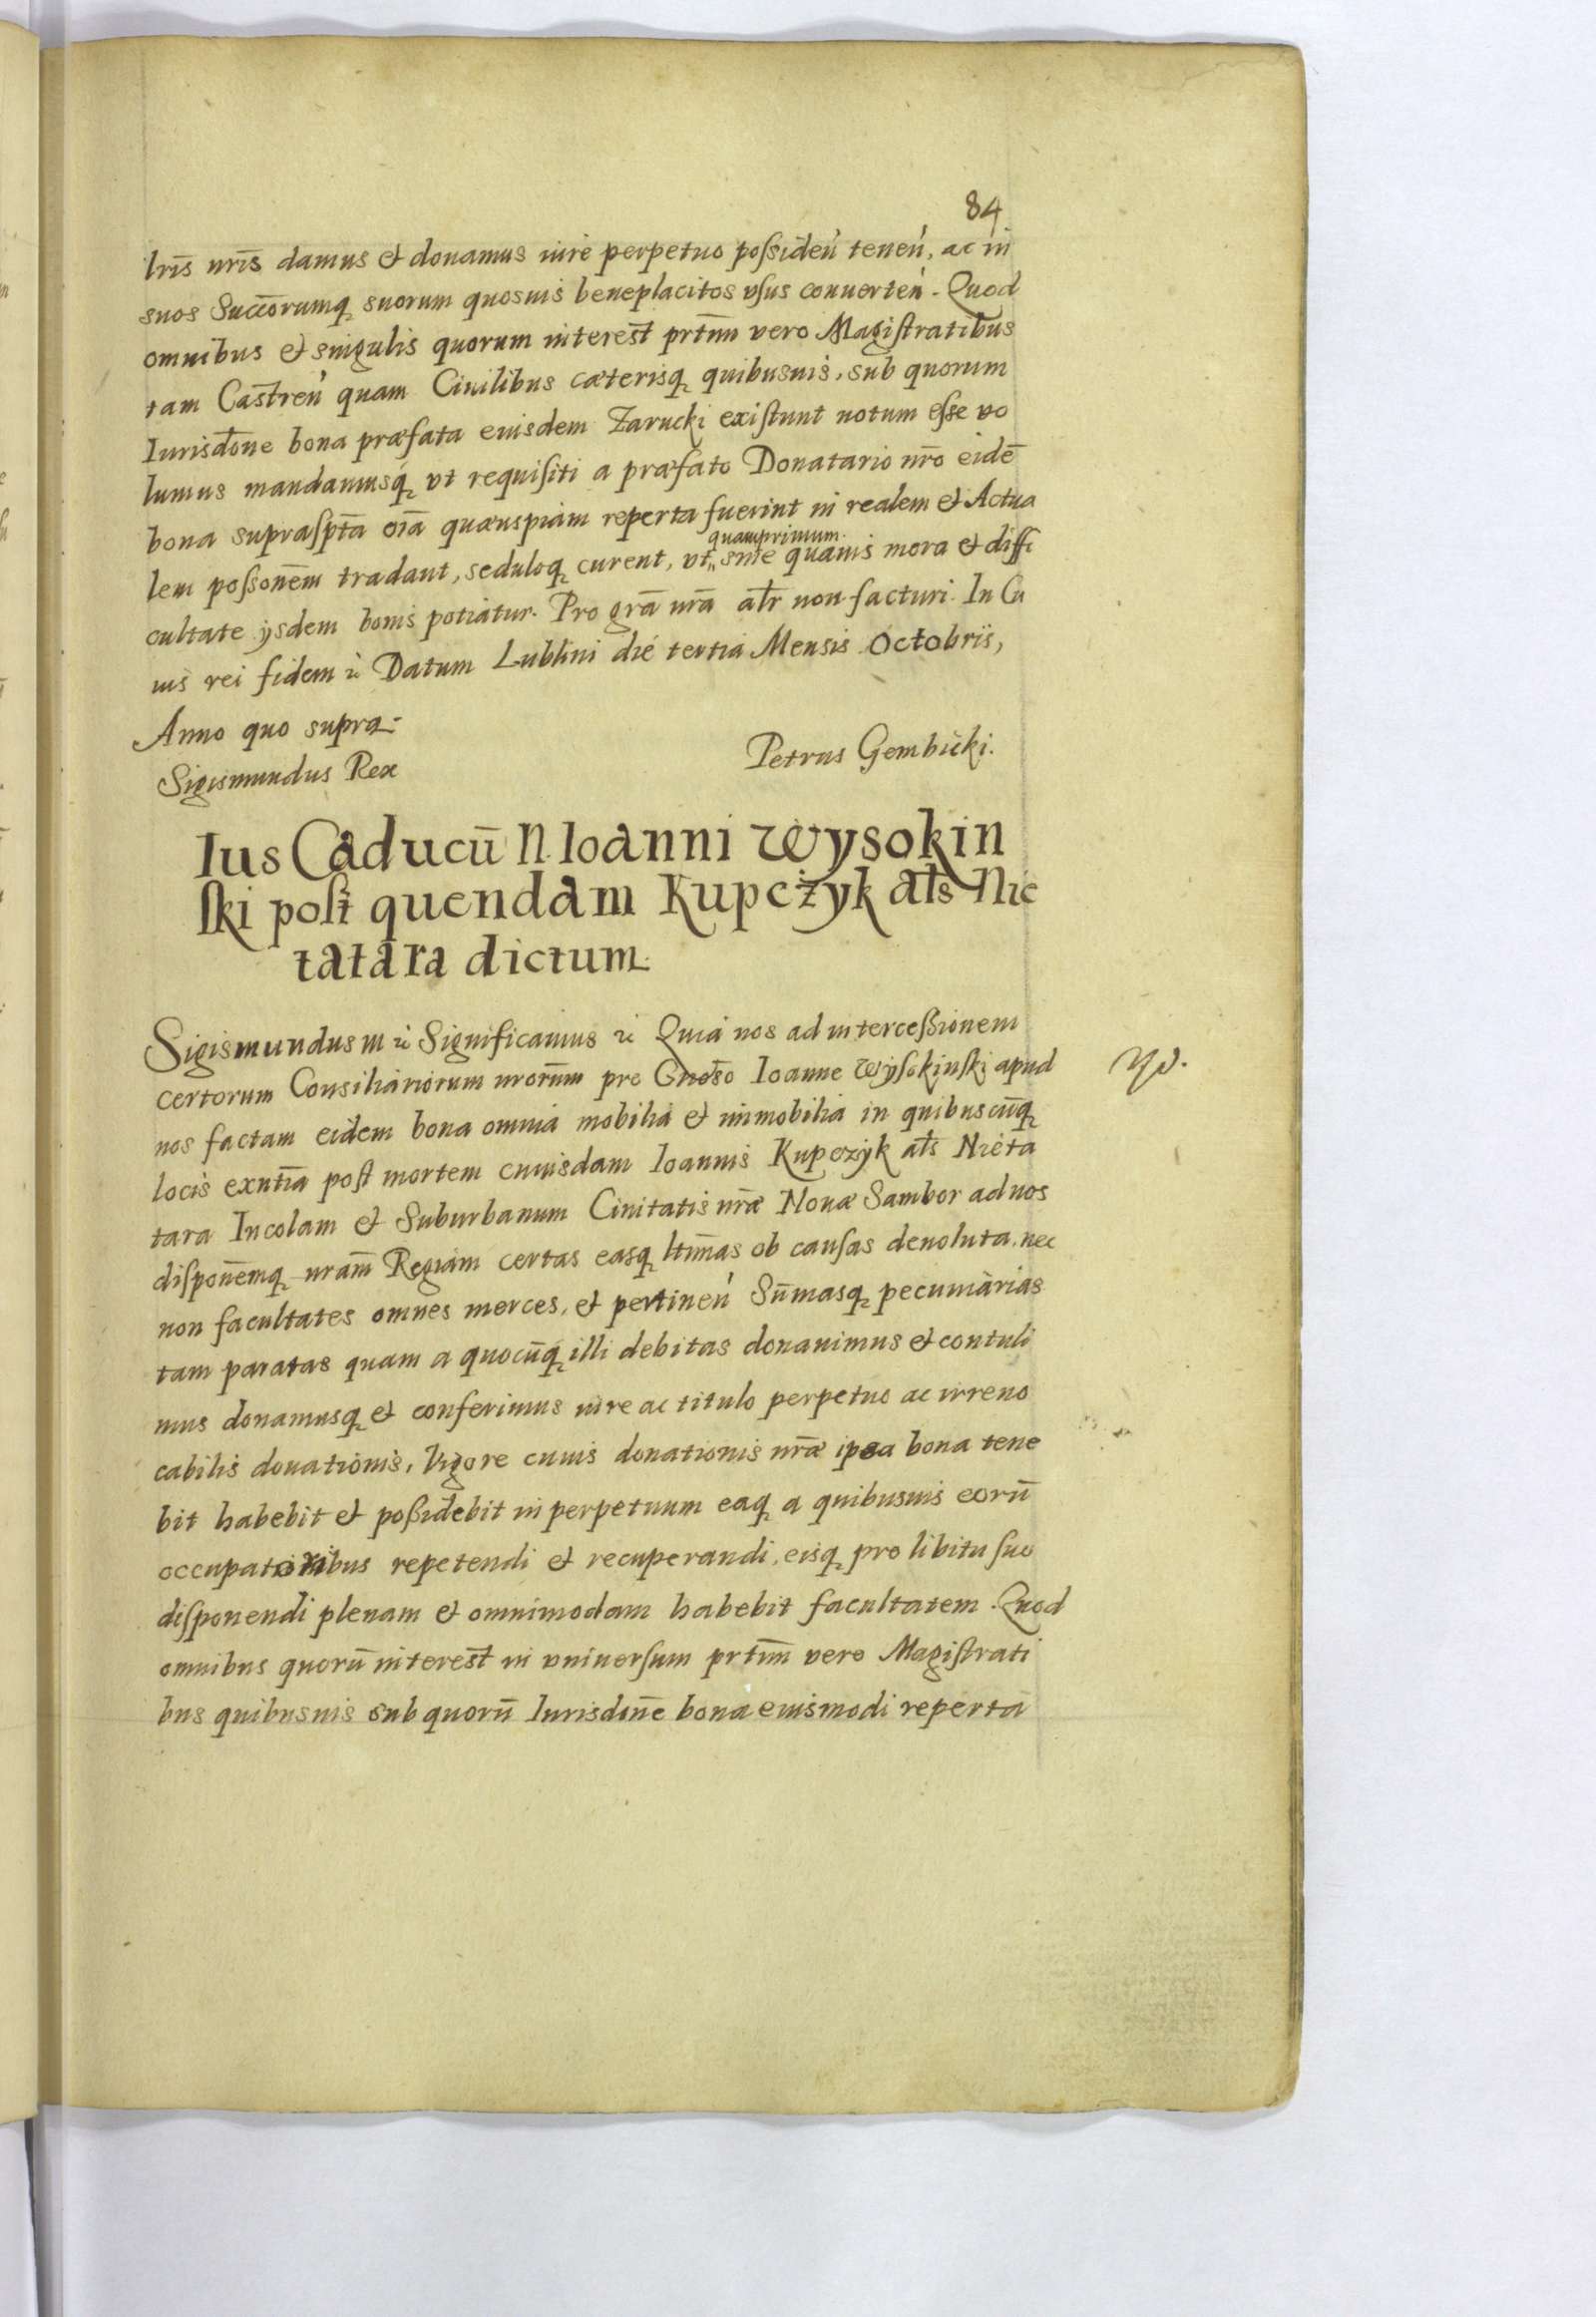 84
lris nris damus et donamus iure perpetuo possiden tenen, ac in
suos Succorumq suorum quosuis beneplacitos vsus conuerten. Quod
omnibus et singulis quorum interest prtim vero Magistratibus
tam Castren quam Ciuilibus cæterisq quibusuis, sub quorum
Iurisdone bona præfata eiusdem Zarucki existunt notum esse vo
lumus mandamusq vt requisiti a præfato Donatario nro eidē
bona suprasptā oiā quæuspiam reperta fuerint in realem et Actua
quamprimum
lem possonem tradant, seduloq curent, vt sine quauis mora et diffi
cultate ysdem bonis potiatur. Pro grā nrā alr non facturi. In Cu
ius rei fidem &c Datum Lublini die tertia Mensis Octobris,
Anno quo supra.
Sigismundus Rex Petrus Gembicki.
Ius Caducū N. Ioanni Wysokin
ski post quendam Kupcżyk als Nie
tatara dictum.
Sigismundus III &c Significamus &c Quia nos ad intercessionem
certorum Consiliariorum nrorum pro Gnoso Ioanne Wysokinski apud
nos factam eidem bona omnia mobilia et immobilia in quibuscūq
locis exntia post mortem cuiusdam Ioannis Kupczyk als Nieta
tara Incolam et Suburbanum Ciuitatis nræ Nouæ Sambor ad nos
disponemq nram Regiam certas easq ltimas ob causas deuoluta. nec
non facultates omnes merces, et pertinen Sūmasq pecuniarias
tam paratas quam a quocūq illi debitas donauimus et contuli
mus donamusq et conferimus iure ac titulo perpetuo ac irreuo
cabilis donationis, Vigore cuius donationis nræ ipsa bona tene
bit habebit et possidebit in perpetuum eaq a quibusuis eorū
occupatoribus repetendi et recuperandi, eisq pro libitu suo
disponendi plenam et omnimodam habebit facultatem. Quod
omnibus quorū interest in vniuersum prtim vero Magistrati
bus quibusuis sub quorū Iurisdine bona eiusmodi reperta